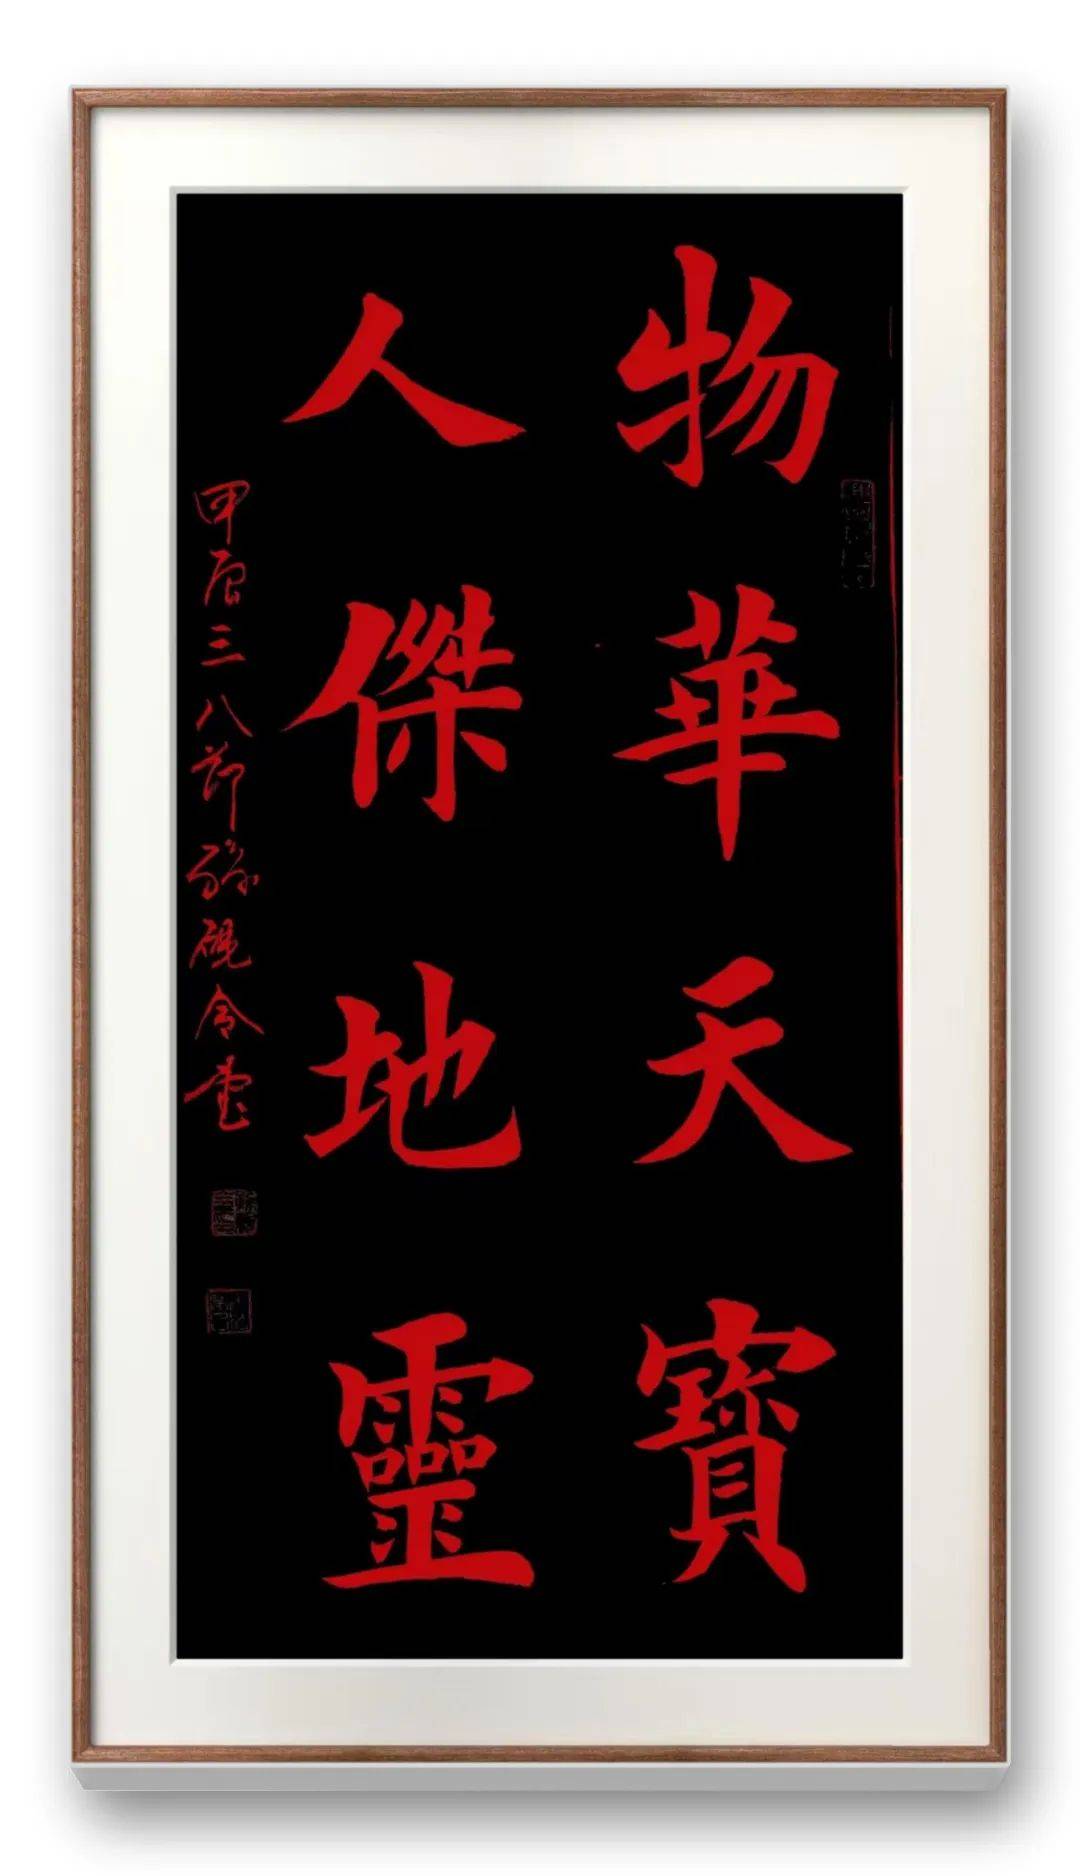 物華天寶
人傑地靈
甲辰三八節孫硯令書